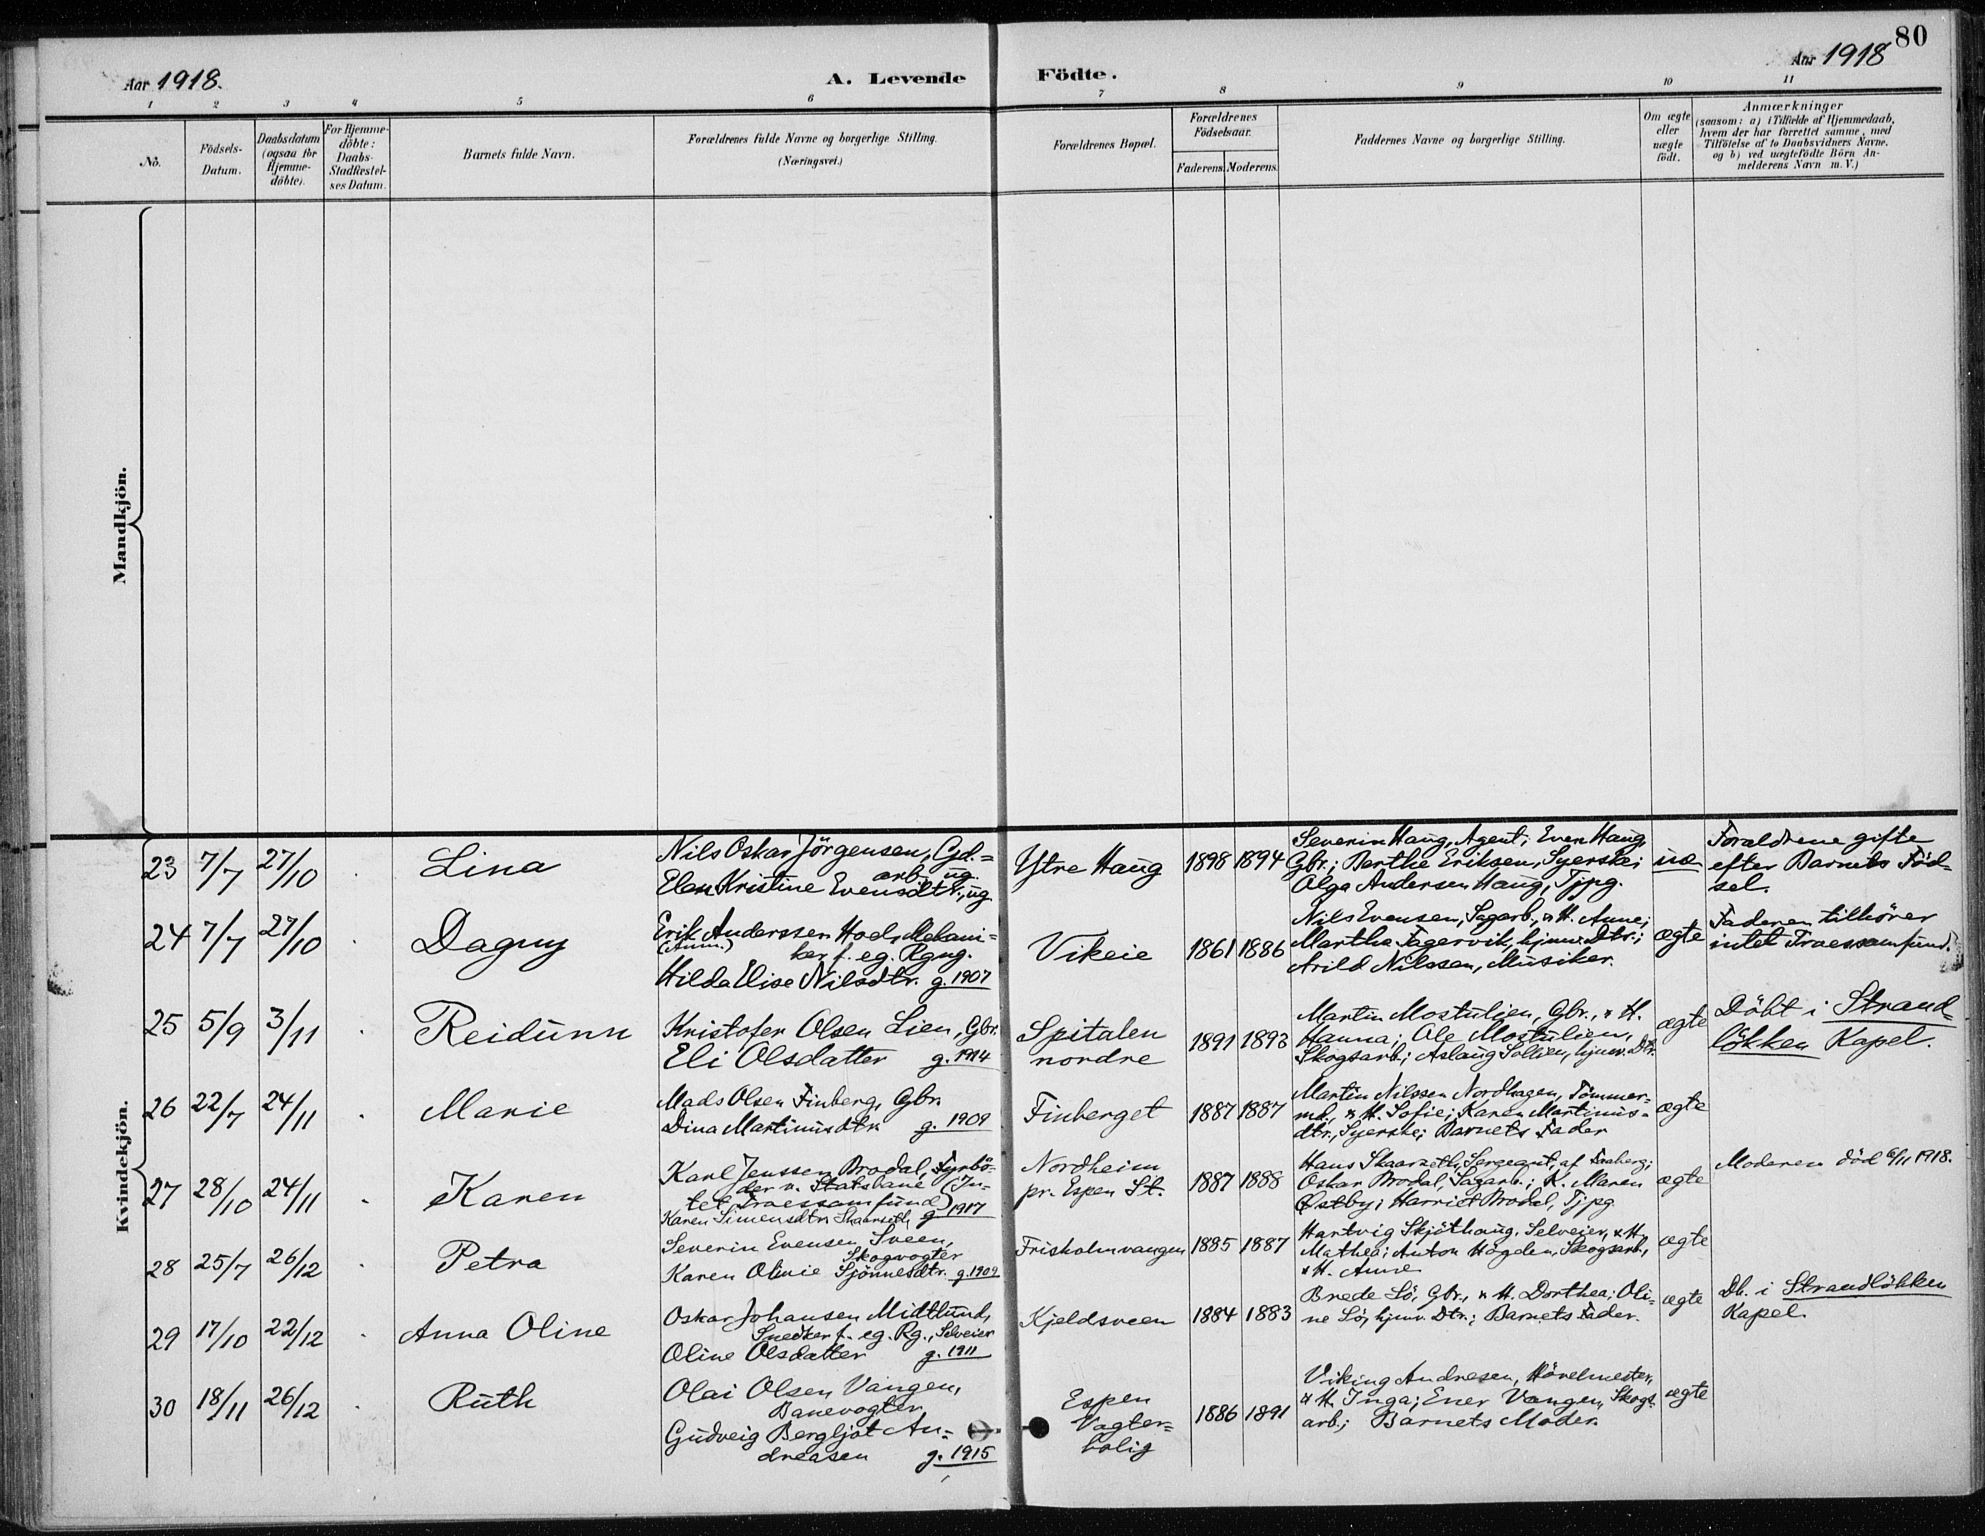 80
Aar 1918.
A. Levende
Födte.
Aar 1918
1 2 3 4 5 6 7 8 9 10 11
No.
Födsels-
Datum.
Daabsdatum
(ogsaa for
Hjemme-
döbte).
For Hjemme-
döbte:
Daabs-
Stadfæstel-
ses Datum.
Barnets fulde Navn.
Forældrenes fulde Navne og borgerlige Stilling.
(Næringsvei.)
Forældrenes Bopæl.
Forældrenes
Födselsaar.
Faderens. Moderens.
Faddernes Navne og borgerlige Stilling.
Om ægte
eller
uægte
födt.
Anmærkninger
(saasom: a) i Tilfælde af Hjemmedaab,
hvem der har forrettet samme, med
Tilföielse af to Daabsvidners Navne,
og b) ved uægtefödte Börn An-
melderens Navn m. V.)
Mandkjön.
Kvindekjön.
23 7/7 27/10 Lina
Nils Oskar Jörgensen, Gd.=
arb., ug.
Elen Kristine Evensdtr., ug.
Ytre Haug 1898 1894
Severin Haug, Agent; Even Haug,
Gbr.; Berthe Eriksen, Syerske;
Olga Andersen Haug, Tjpg.
uæ
Forældrene gifte
efter Barnets Föd-
sel.
24 7/7 27/10 Dagny
Erik Anderssen Hoel, Mekani=
ker f. eg. Rgng.
(Anm.)
Hilda Elise Nilsdtr. g. 1907
Vikeie 1861 1886
Nils Evensen, Sagarb., & H. Anne;
Marthe Fagervik, hjmv. Dtr.;
Arild Nilssen, Musiker.
ægte
Faderen tilhører
intet Troessamfund.
25 5/9 3/11 Reidunn
Kristofer Olsen Lien, Gbr.
Eli Olsdatter g. 1914
Spitalen
nordre
1891 1893
Martin Mostulien, Gbr., & H.
Hanna; Ole Mostulien,
Skogsarb; Aslaug Sollien, hjmv. Dtr.
ægte
Döbt i Strand-
lökken Kapel.
26 22/7 24/11 Marie
Mads Olsen Finberg, Gbr.
Dina Martinusdtr. g. 1909
Finberget 1887 1887
Martin Nilssen Nordhagen, Tömmer-
md., & H. Sofie; Karen Martinus-
dtr., Syerske; Barnets Fader
ægte
27 28/10 24/11 Karen
Karl Jenssen Brodal, Fyrbö-
der v. Statsbane (In-
tet Troessamfund)
Karen Simensdtr. Skaarseth, g 1917
Nordheim
pr. Espen St.
1887 1888
Hans Skaarseth, Sergeant, af
Oskar Brodal, Sagarb.; K. Maren
Østby; Harriet Brodal, Tjpg.
ægte
Moderen död 6/11 1918.
28 25/7 26/12 Petra
Severin Evensen Sveen,
Skogvogter
Karen Olinie Sjönnesdtr. g. 1909
Frisholmvangen 1885 1887
Hartvig Skjöthaug, Selveier, & H.
Mathea; Anton Högden, Skogsarb.,
& H. Anne
ægte
29 17/10 22/12 Anna Oline
Oskar Johansen Midtlund,
Snedker f. eg. Rg., Selveier
Oline Olsdatter g. 1911
Kjeldsveen 1884 1883
Brede Lö, Gbr., & H. Dorthea; Oli-
ne Lö, hjmv. Dtr.; Barnets Fader.
ægte
Db. i Strandlökken
Kapel.
30 18/11 26/12 Ruth
Olai Olsen Vangen,
Banevogter
Gudveig Bergljot An-
dreasen g. 1915
Espen
Vogter-
bolig
1886 1891
Viking Andresen, Hövelmester,
& H. Inga; Ener Vangen, Skogs-
arb; Barnets Moder.
ægte